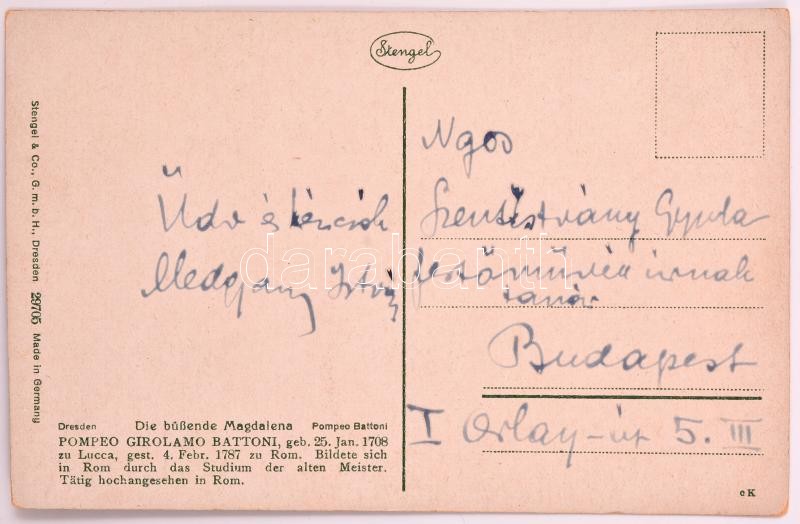 Stengel
Stengel & Co., G. m. b. H., Dresden 29705 Made in Germany
Üdv és
Medgyai István
Ngos
Szentistványi Gyula
festőművész úrnak
tanár
Budapest
I Orlay-út 5. III
Dresden Die büßende Magdalena Pompeo Battoni
POMPEO GIROLAMO BATTONI, geb. 25. Jan. 1708
zu Lucca, gest. 4. Febr. 1787 zu Rom. Bildete sich
in Rom durch das Studium der alten Meister.
Tätig hochangesehen in Rom.
cK
darabanth